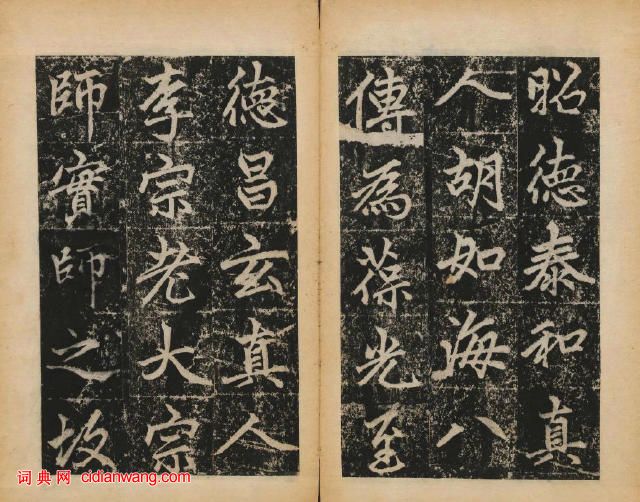 昭德泰和真
人胡如海八
傳為葆光至
德昌玄真人
李宗老大宗
師實師之故
词典网 cidianwang.com